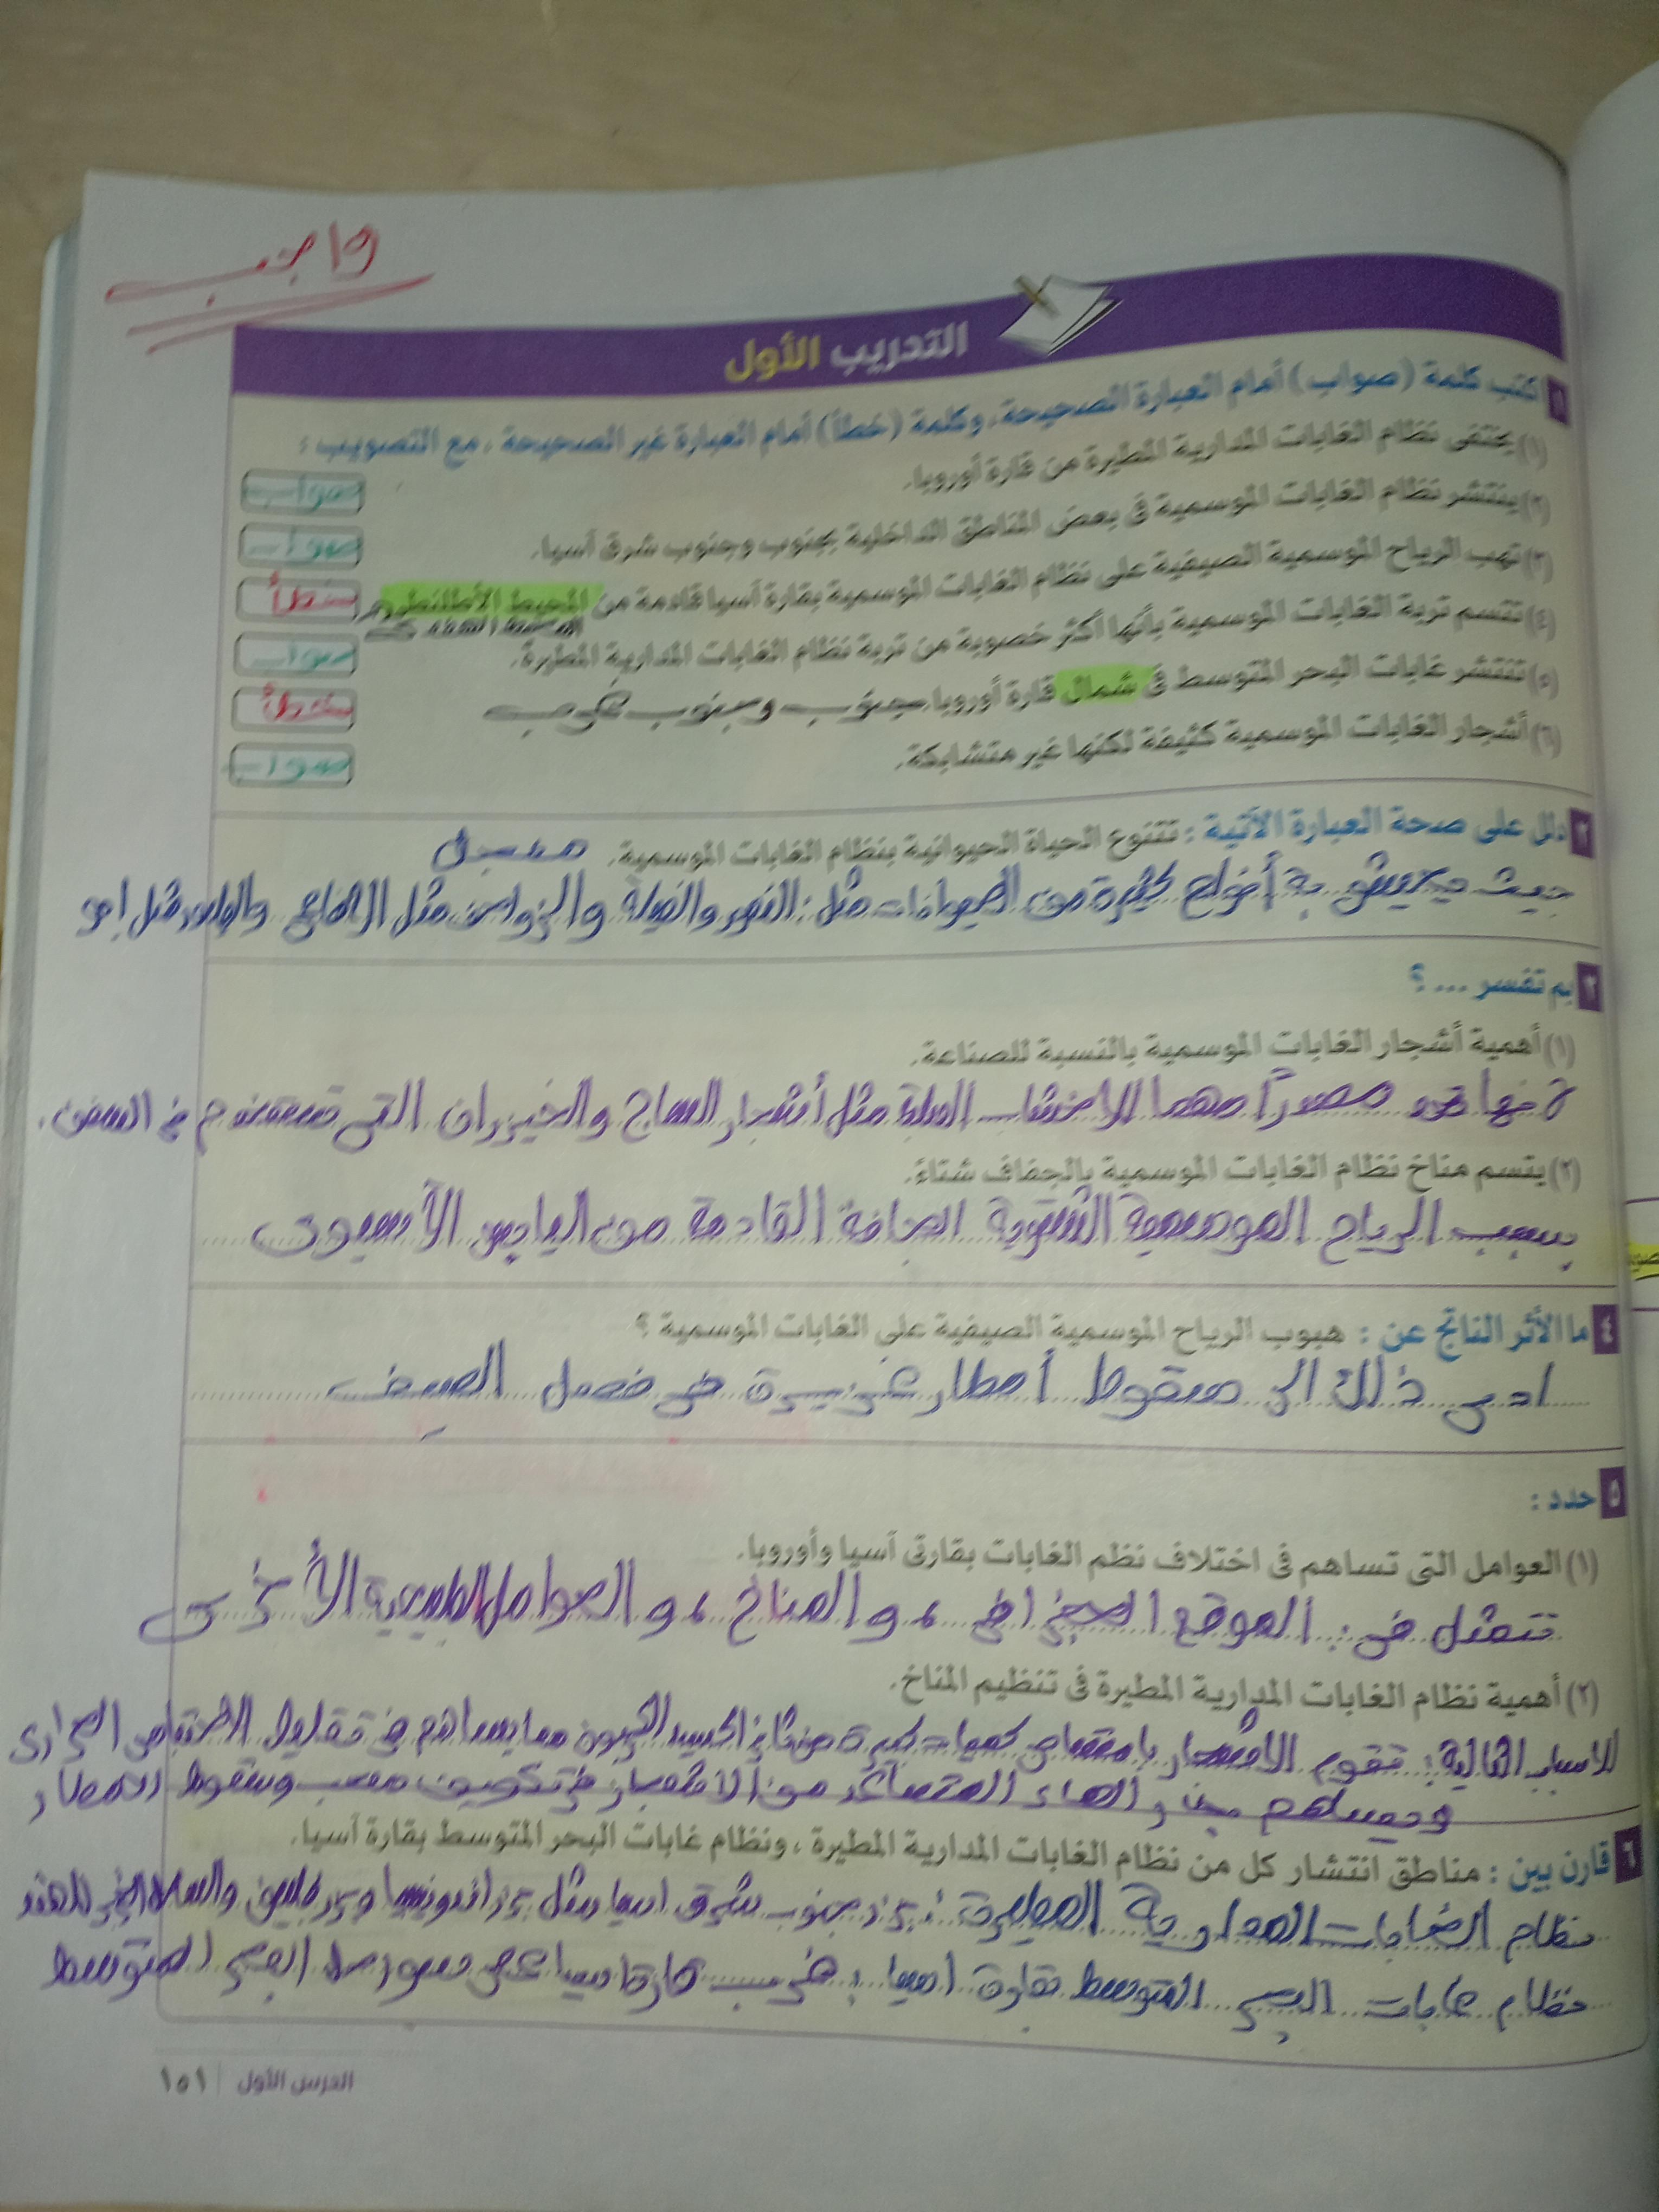 واجب
التدريب الأول
١ اكتب كلمة (صواب) أمام العبارة الصحيحة، وكلمة (خطأ) أمام العبارة غير الصحيحة، مع التصويب :
(١) يختفى نظام الغابات المدارية المطيرة من قارة أوروبا. صواب
(٢) ينتشر نظام الغابات الموسمية فى بعض المناطق الداخلية بجنوب وجنوب شرق آسيا. صواب
(٣) تهب الرياح الموسمية الصيفية على نظام الغابات الموسمية بقارة آسيا قادمة من المحيط الأطلنطى. خطأ
(٤) تتسم تربة الغابات الموسمية بأنها أكثر خصوبة من تربة نظام الغابات المدارية المطيرة. صواب
(٥) تنتشر غابات البحر المتوسط فى شمال قارة أوروبا. جنوب وجنوب غرب خطأ
(٦) أشجار الغابات الموسمية كثيفة لكنها غير متشابكة. صواب
٢ دلل على صحة العبارة الآتية : تتنوع الحياة الحيوانية بنظام الغابات الموسمية.
حيث يعيش به أنواع كثيرة من الحيوانات مثل : النمور والفيلة والزواحف مثل الافاعى والطيور مثل ابو
منجل
٣ بم تفسر ... ؟
(١) أهمية أشجار الغابات الموسمية بالنسبة للصناعة.
لأنها تعد مصدراً مهما للاخشاب الصلبة مثل أشجار الساج والخيزران التى تستخدم فى السفن.
(٢) يتسم مناخ نظام الغابات الموسمية بالجفاف شتاءً.
بسبب الرياح الموسمية الشتوية الجافة القادمة من اليابس الآسيوى
٤ ما الأثر الناتج عن : هبوب الرياح الموسمية الصيفية على الغابات الموسمية ؟
ادى ذلك الى سقوط أمطار غزيرة فى فصل الصيف
٥ حدد :
(١) العوامل التى تساهم فى اختلاف نظم الغابات بقارتى آسيا وأوروبا.
تتمثل فى : الموقع الجغرافى ، و المناخ ، و العوامل الطبيعية الأخرى
(٢) أهمية نظام الغابات المدارية المطيرة فى تنظيم المناخ.
للاسباب التالية : تقوم الاشجار بامتصاص كميات كبيرة من ثانى اكسيد الكربون مما يساهم فى تقليل الاحتباس الحرارى
ويساهم بخار الماء المتصاعد من الاشجار فى تكوين سحب وسقوط الامطار
٦ قارن بين : مناطق انتشار كل من نظام الغابات المدارية المطيرة ، ونظام غابات البحر المتوسط بقارة آسيا.
نظام الغابات المدارية المطيرة : جنوب شرق اسيا مثل والساحل الغربى للهند
نظام غابات البحر المتوسط بقارة اسيا : غرب قارة اسيا على سواحل البحر المتوسط
الدرس الأول | ١٥١